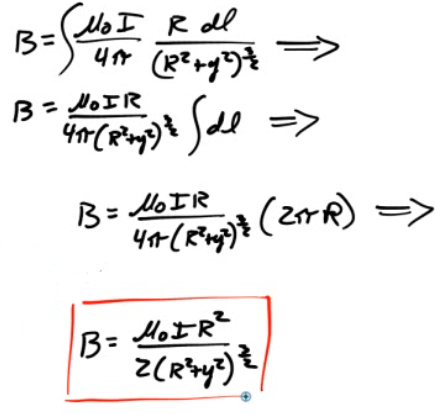 B = ∫ μ₀I/4π R dl/(R²+y²)^(3/2) ⟹
B = μ₀IR/4π(R²+y²)^(3/2) ∫dl ⟹
B = μ₀IR/4π(R²+y²)^(3/2) (2πR) ⟹
B = μ₀IR²/2(R²+y²)^(3/2)